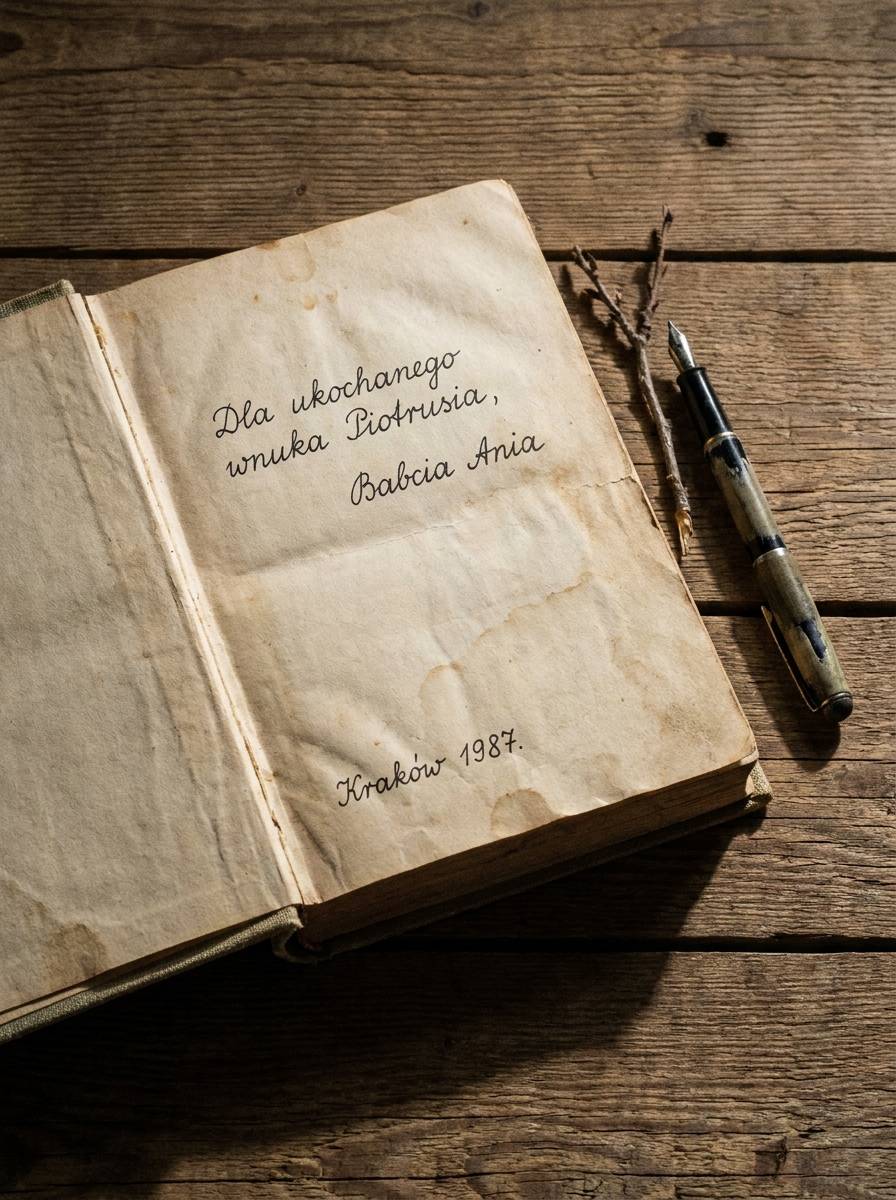 Dla ukochanego
wnuka Piotrusia,
Babcia Ania
Kraków 1987.